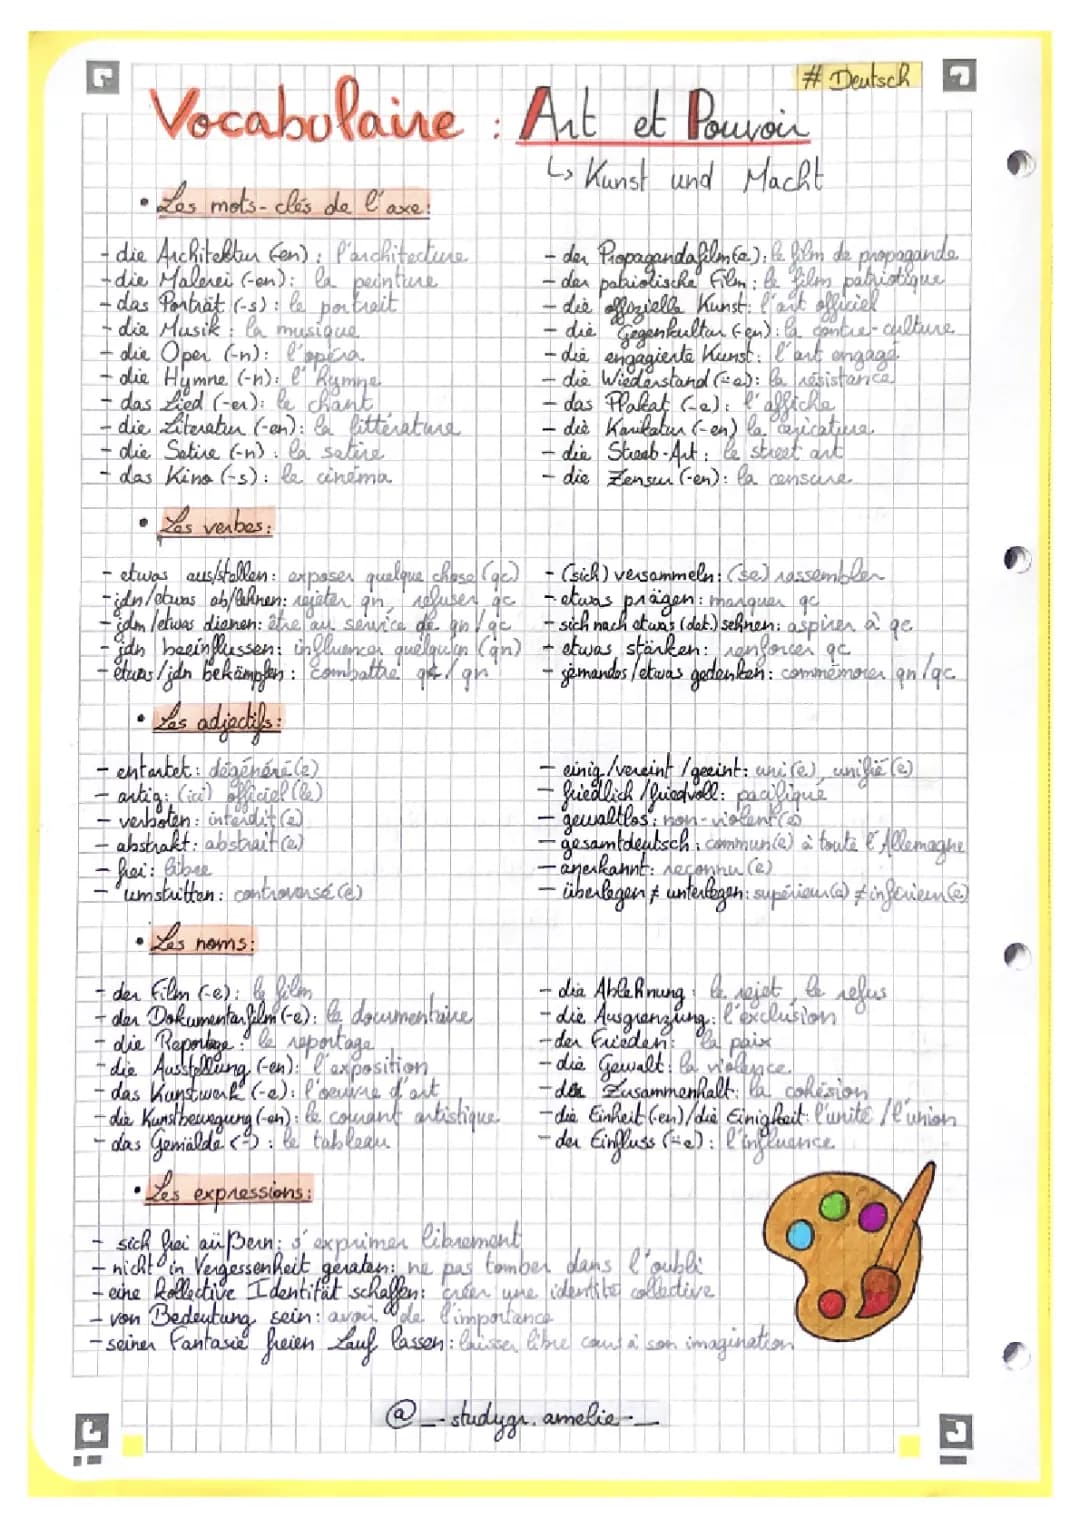 # Deutsch
Vocabulaire : Art et Pouvoir
↳ Kunst und Macht
• Les mots-clés de l'axe:
- die Architektur (-en) : l'architecture
- die Malerei (-en): la peinture
- das Porträt (-s) : le portrait
- die Musik : la musique
- die Oper (-n): l'opéra
- die Hymne (-n): l'hymne
- das Lied (-er): le chant
- die Literatur (-en): la littérature
- die Satire (-n) : la satire
- das Kino (-s) : le cinéma
- der Propagandafilm(e): le film de propagande
- der patriotische Film: le film patriotique
- die offizielle Kunst: l'art officiel
- die Gegenkultur (-en): la contre-culture
- die engagierte Kunst: l'art engagé
- die Wiederstand (¨e): la résistance
- das Plakat (-e): l'affiche
- die Karikatur (-en) la caricature
- die Streeb-Art : le street art
- die Zensur (-en): la censure
• Les verbes:
- etwas aus/stellen: exposer quelque chose (qc)
- jdn/etwas ab/lehnen: rejeter qn, refuser qc
- jdm/etwas dienen: être au service de qn/qc
- jdn beeinflussen: influencer quelqu'un (qn)
- etwas/jdn bekämpfen : combattre qc/qn
- (sich) versammeln: (se) rassembler
- etwas prägen: marquer qc
- sich nach etwas (dat.) sehnen: aspirer à qc
- etwas stärken: renforcer qc
- jemandes/etwas gedenken: commémorer qn/qc
• Les adjectifs:
- entartet: dégénéré(e)
- artig: (ici) officiel(le)
- verboten: interdit(e)
- abstrakt: abstrait(e)
- frei: libre
- umstritten: controversé(e)
- einig/vereint/geeint: uni(e), unifié(e)
- friedlich/friedvoll: pacifique
- gewaltlos: non-violent(e)
- gesamtdeutsch: commun(e) à toute l'Allemagne
- anerkannt: reconnu(e)
- überlegen ≠ unterlegen: supérieur(e) ≠ inférieur(e)
• Les noms:
- der Film (-e): le film
- der Dokumentarfilm (-e): le documentaire
- die Reportage : le reportage
- die Ausstellung (-en): l'exposition
- das Kunstwerk (-e): l'oeuvre d'art
- die Kunstbewegung (-en): le courant artistique
- das Gemälde (-) : le tableau
- die Ablehnung : le rejet, le refus
- die Ausgrenzung: l'exclusion
- der Frieden: la paix
- die Gewalt: la violence
- der Zusammenhalt: la cohésion
- die Einheit (-en)/die Einigkeit: l'unité/l'union
- der Einfluss (¨e): l'influence
• Les expressions:
- sich frei äußern: s'exprimer librement
- nicht in Vergessenheit geraten: ne pas tomber dans l'oubli
- eine kollective Identität schaffen: créer une identité collective
- von Bedeutung sein: avoir de l'importance
- seiner Fantasie freien Lauf lassen: laisser libre cours à son imagination
@_-studygr.amelie-_